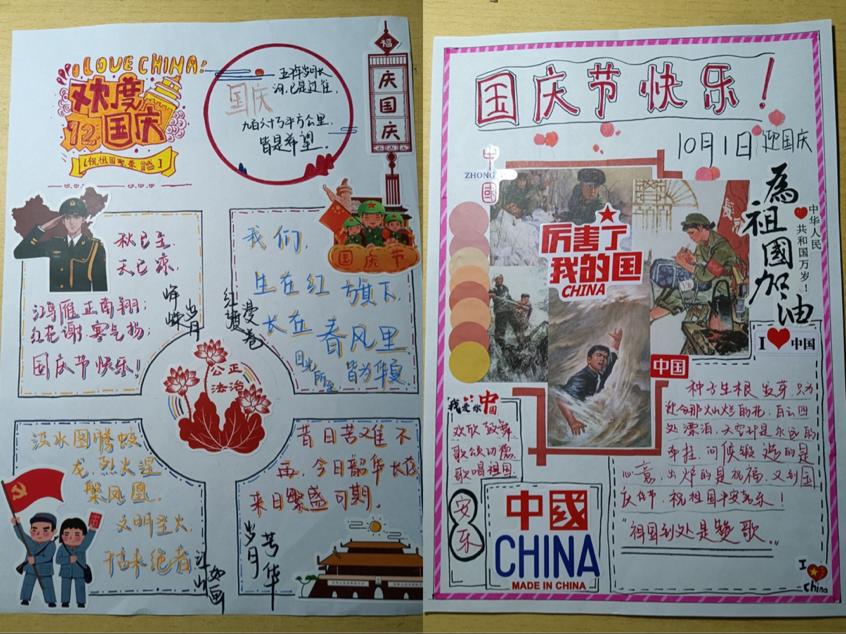 I LOVE CHINA!
欢度
国庆
福
庆
国
庆
国庆
五年岁月长
河,已是过往,
九百六十万平方公里,
皆是希望.
秋已至
天已凉
鸿雁正南翔;
红花谢,寒气扬;
国庆节快乐!
峥嵘
岁月
我们,
生在红旗下
长在春风里
目光所至 皆为华夏
红旗
漫卷
国庆节
公正
法治
汲水图腾蛟
龙,烈火涅
槃凤凰
文明圣火
千古未绝者
江山
如画
昔日苦难不
再,今日韶华长在
来日繁盛可期.
岁月
芳华
国庆节快乐!
10月1日
迎国庆
中
國
ZHONG
厉害了
我的国
CHINA
為祖國加油
中华人民
共和国万岁!
I
中国
中国
我爱你中国
欢欣鼓舞
歌颂功德
歌唱祖国
安
乐
中國
CHINA
MADE IN CHINA
种子生根发芽,只为
处漂泊,天空计是永远的
心意,
庆佳节,祝祖国平安喜乐!
“祖国到处是赞歌”
I
China